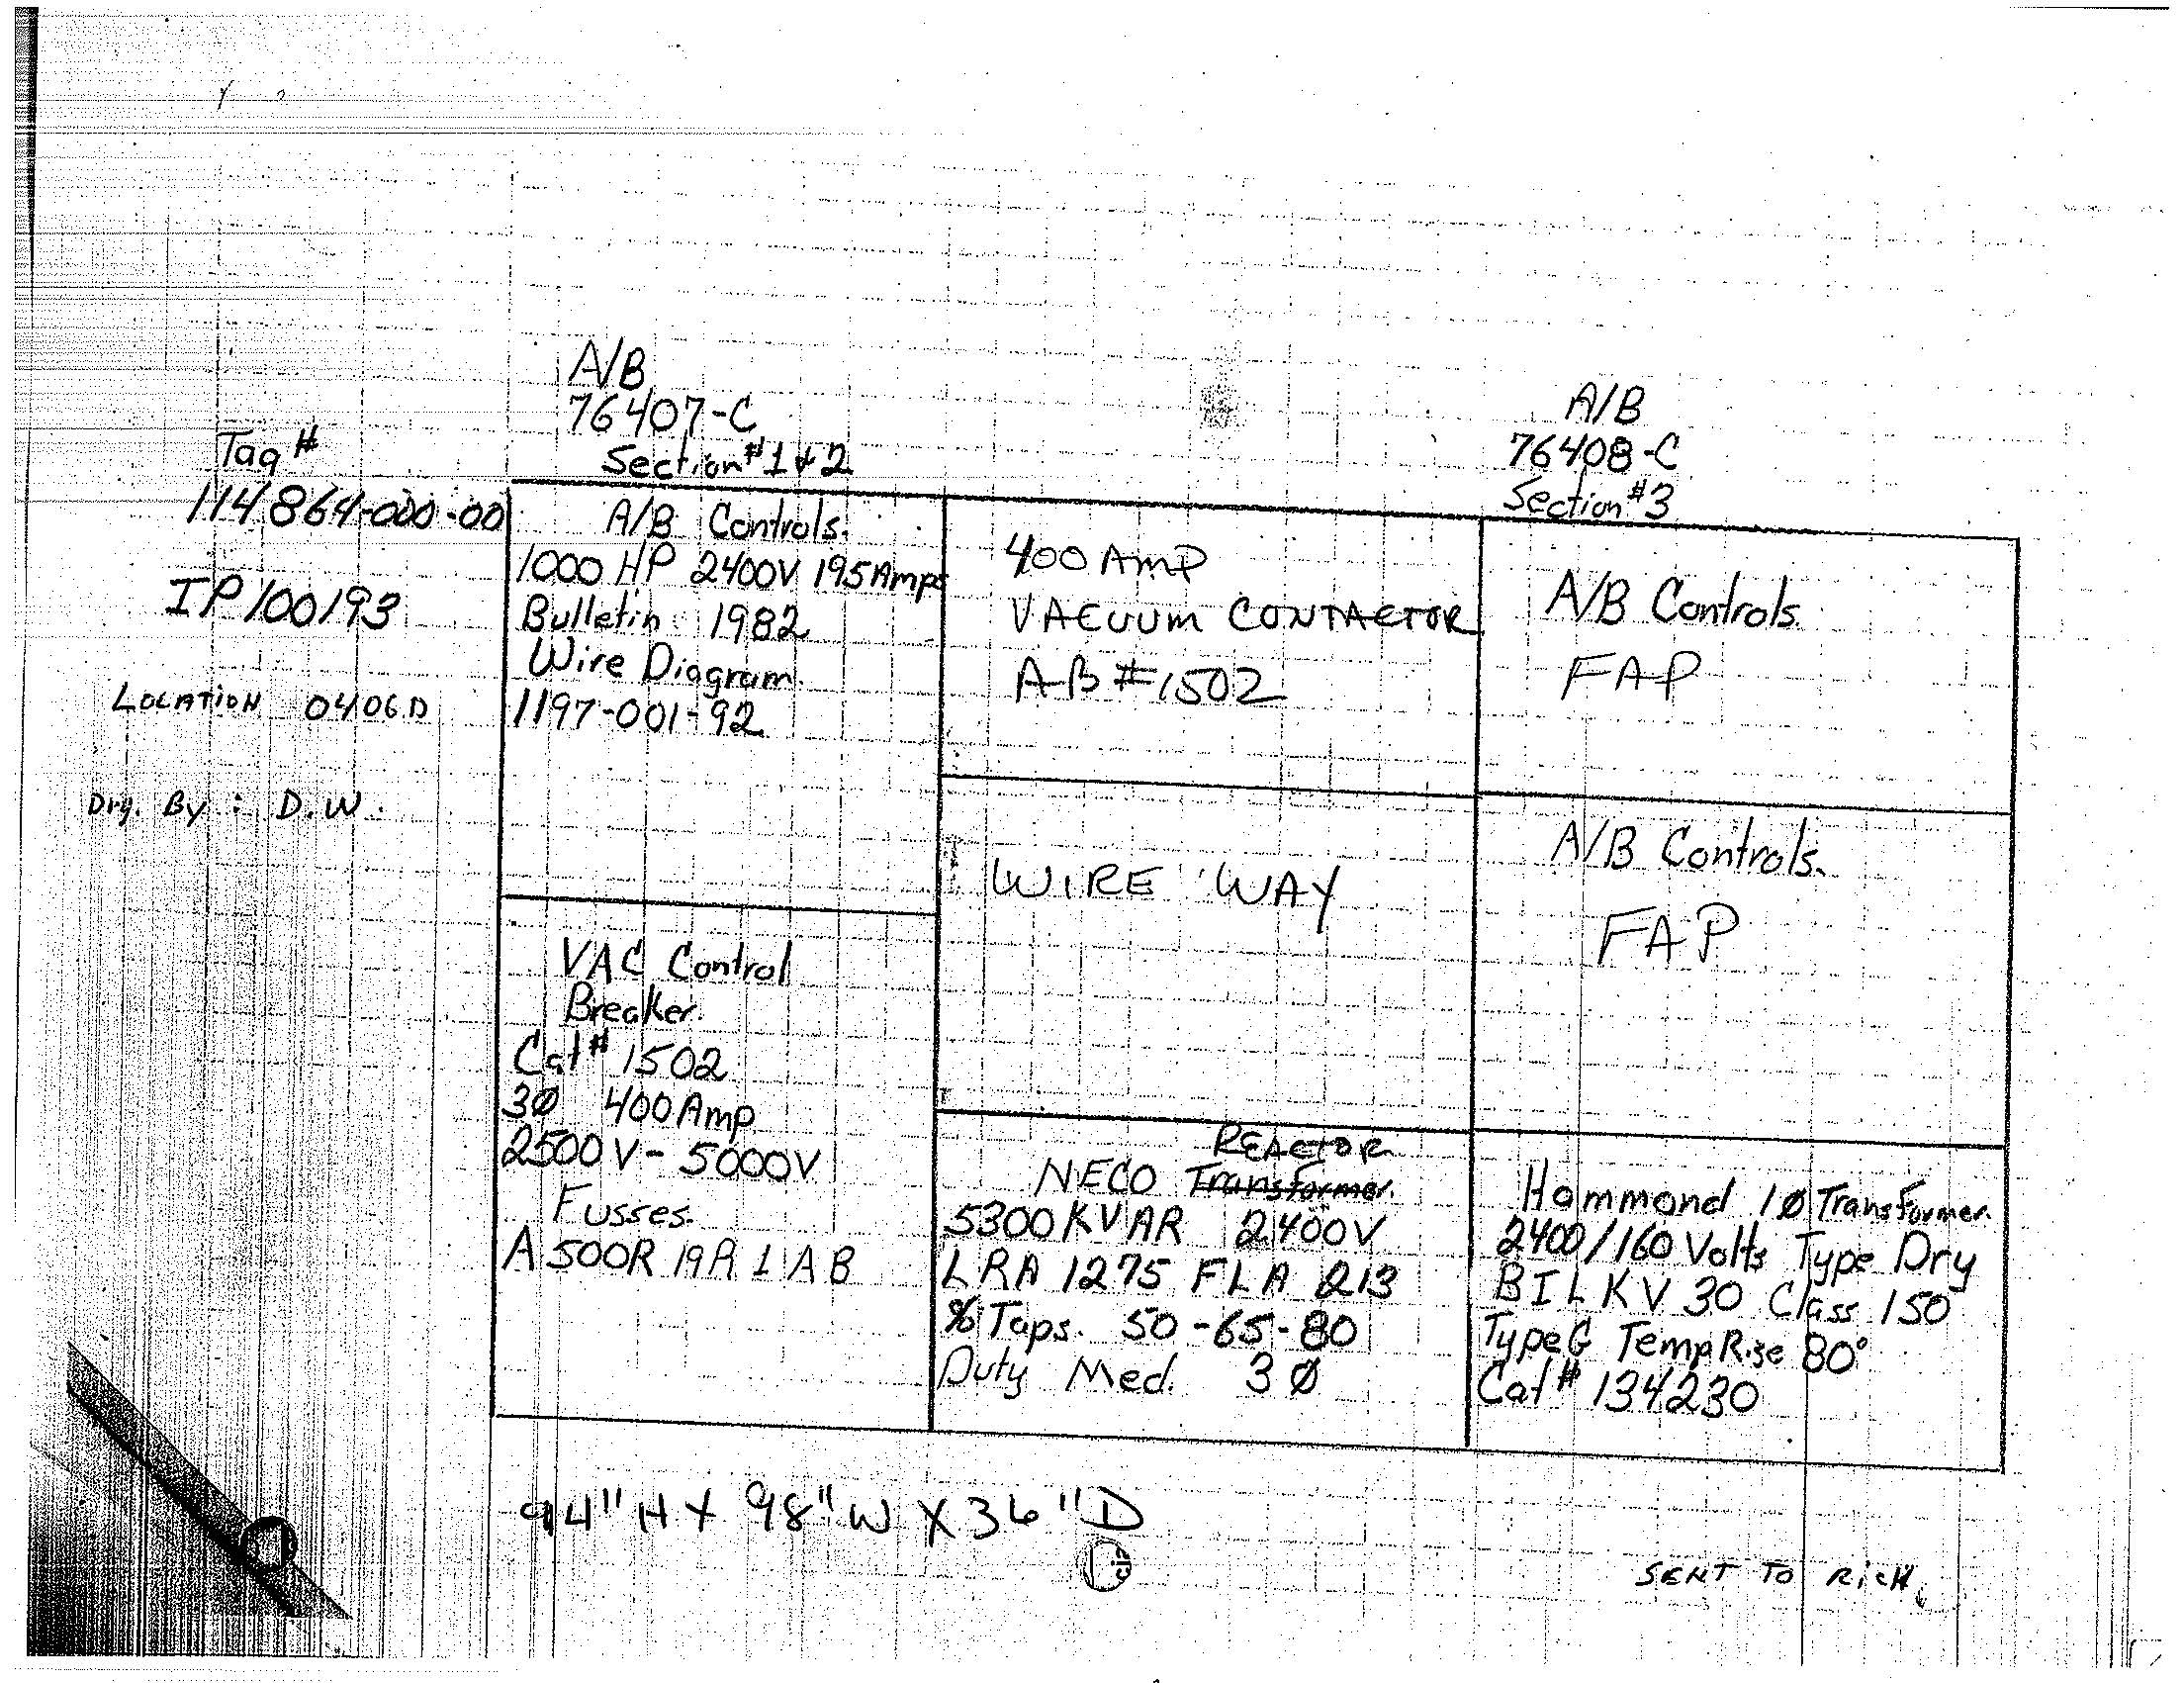 Tag #
114864-000-00
IP100193
LOCATION 0406D
Drg. By : D.W.
A/B
76407-C
Section #1 & 2
A/B
76408-C
Section #3
A/B Controls.
1000 HP 2400V 195 Amps
Bulletin 1982
Wire Diagram.
1197-001-92
VAC Control
Breaker.
Cat # 1502
3Ø 400 Amp
2500V - 5000V
Fusses.
A500R 19R 1 AB
400 AMP
VACUUM CONTACTOR
AB #1502
WIRE WAY
REACTOR
NECO Transformer.
5300 KVAR 2400V
LRA 1275 FLA 213
% Taps. 50-65-80
Duty Med. 3Ø
A/B Controls.
FAP
A/B Controls.
FAP
Hammond 1Ø Transformer.
2400/160 Volts Type Dry
BIL KV 30 Class 150
Type G Temp Rise 80°
Cat # 134230
94" H X 98" W X 36" D
SENT TO RICH